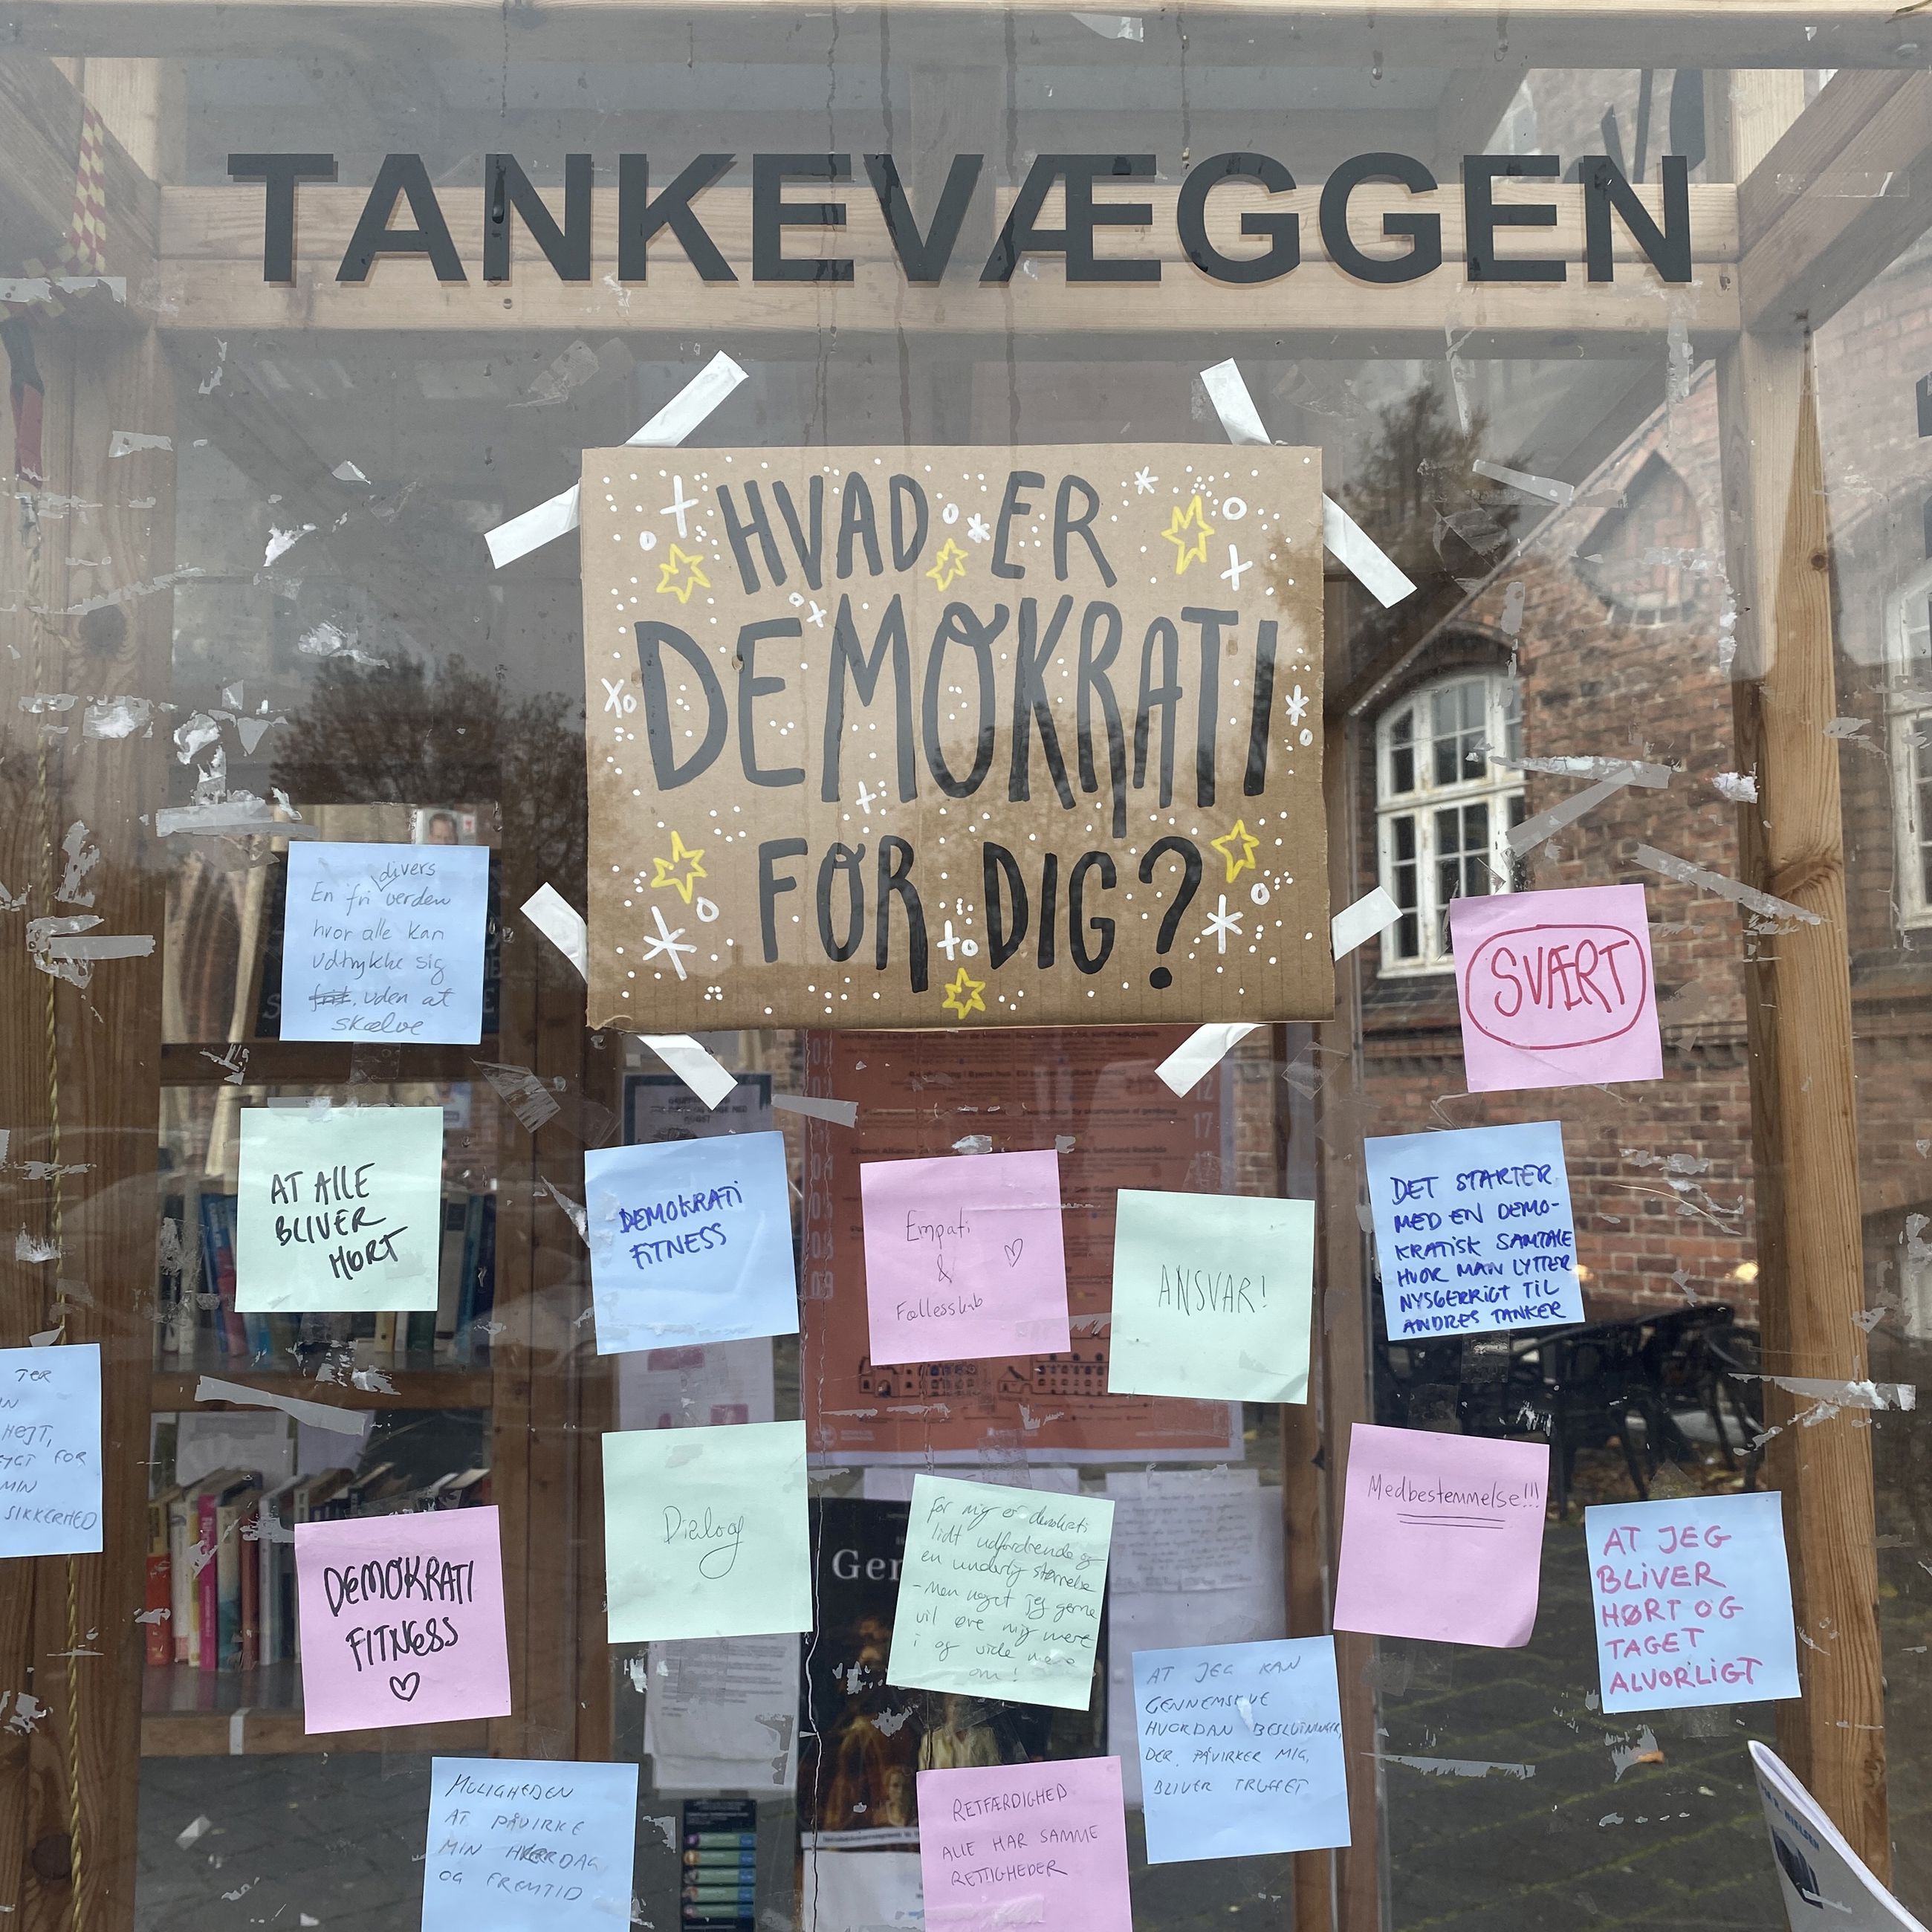 TANKEVÆGGEN
HVAD ER
DEMOKRATI
FOR DIG?
divers
En fri verden
hvor alle kan
udtrykke sig
frit, uden at
skælve
SVÆRT
AT ALLE
BLIVER
HØRT
DEMOKRATI
FITNESS
Empati
&
Fællesskab
ANSVAR!
DET STARTER
MED EN DEMO-
KRATISK SAMTALE
HVOR MAN LYTTER
NYSGERRIGT TIL
ANDRES TANKER
HØJT,
FOR
MIN
SIKKERHED
DEMOKRATI
FITNESS
Dialog
For mig er demokrati
lidt udfordrende og
en underlig størrelse
- Men noget jeg gerne
vil øve mig mere
i og vide mere
om!
Medbestemmelse!!!
AT JEG
BLIVER
HØRT OG
TAGET
ALVORLIGT
AT JEG KAN
GENNEMSKUE
HVORDAN BESLUTNINGER,
DER PÅVIRKER MIG,
BLIVER TRUFFET
MULIGHEDEN
AT PÅVIRKE
MIN HVERDAG
OG FREMTID
RETFÆRDIGHED
ALLE HAR SAMME
RETTIGHEDER